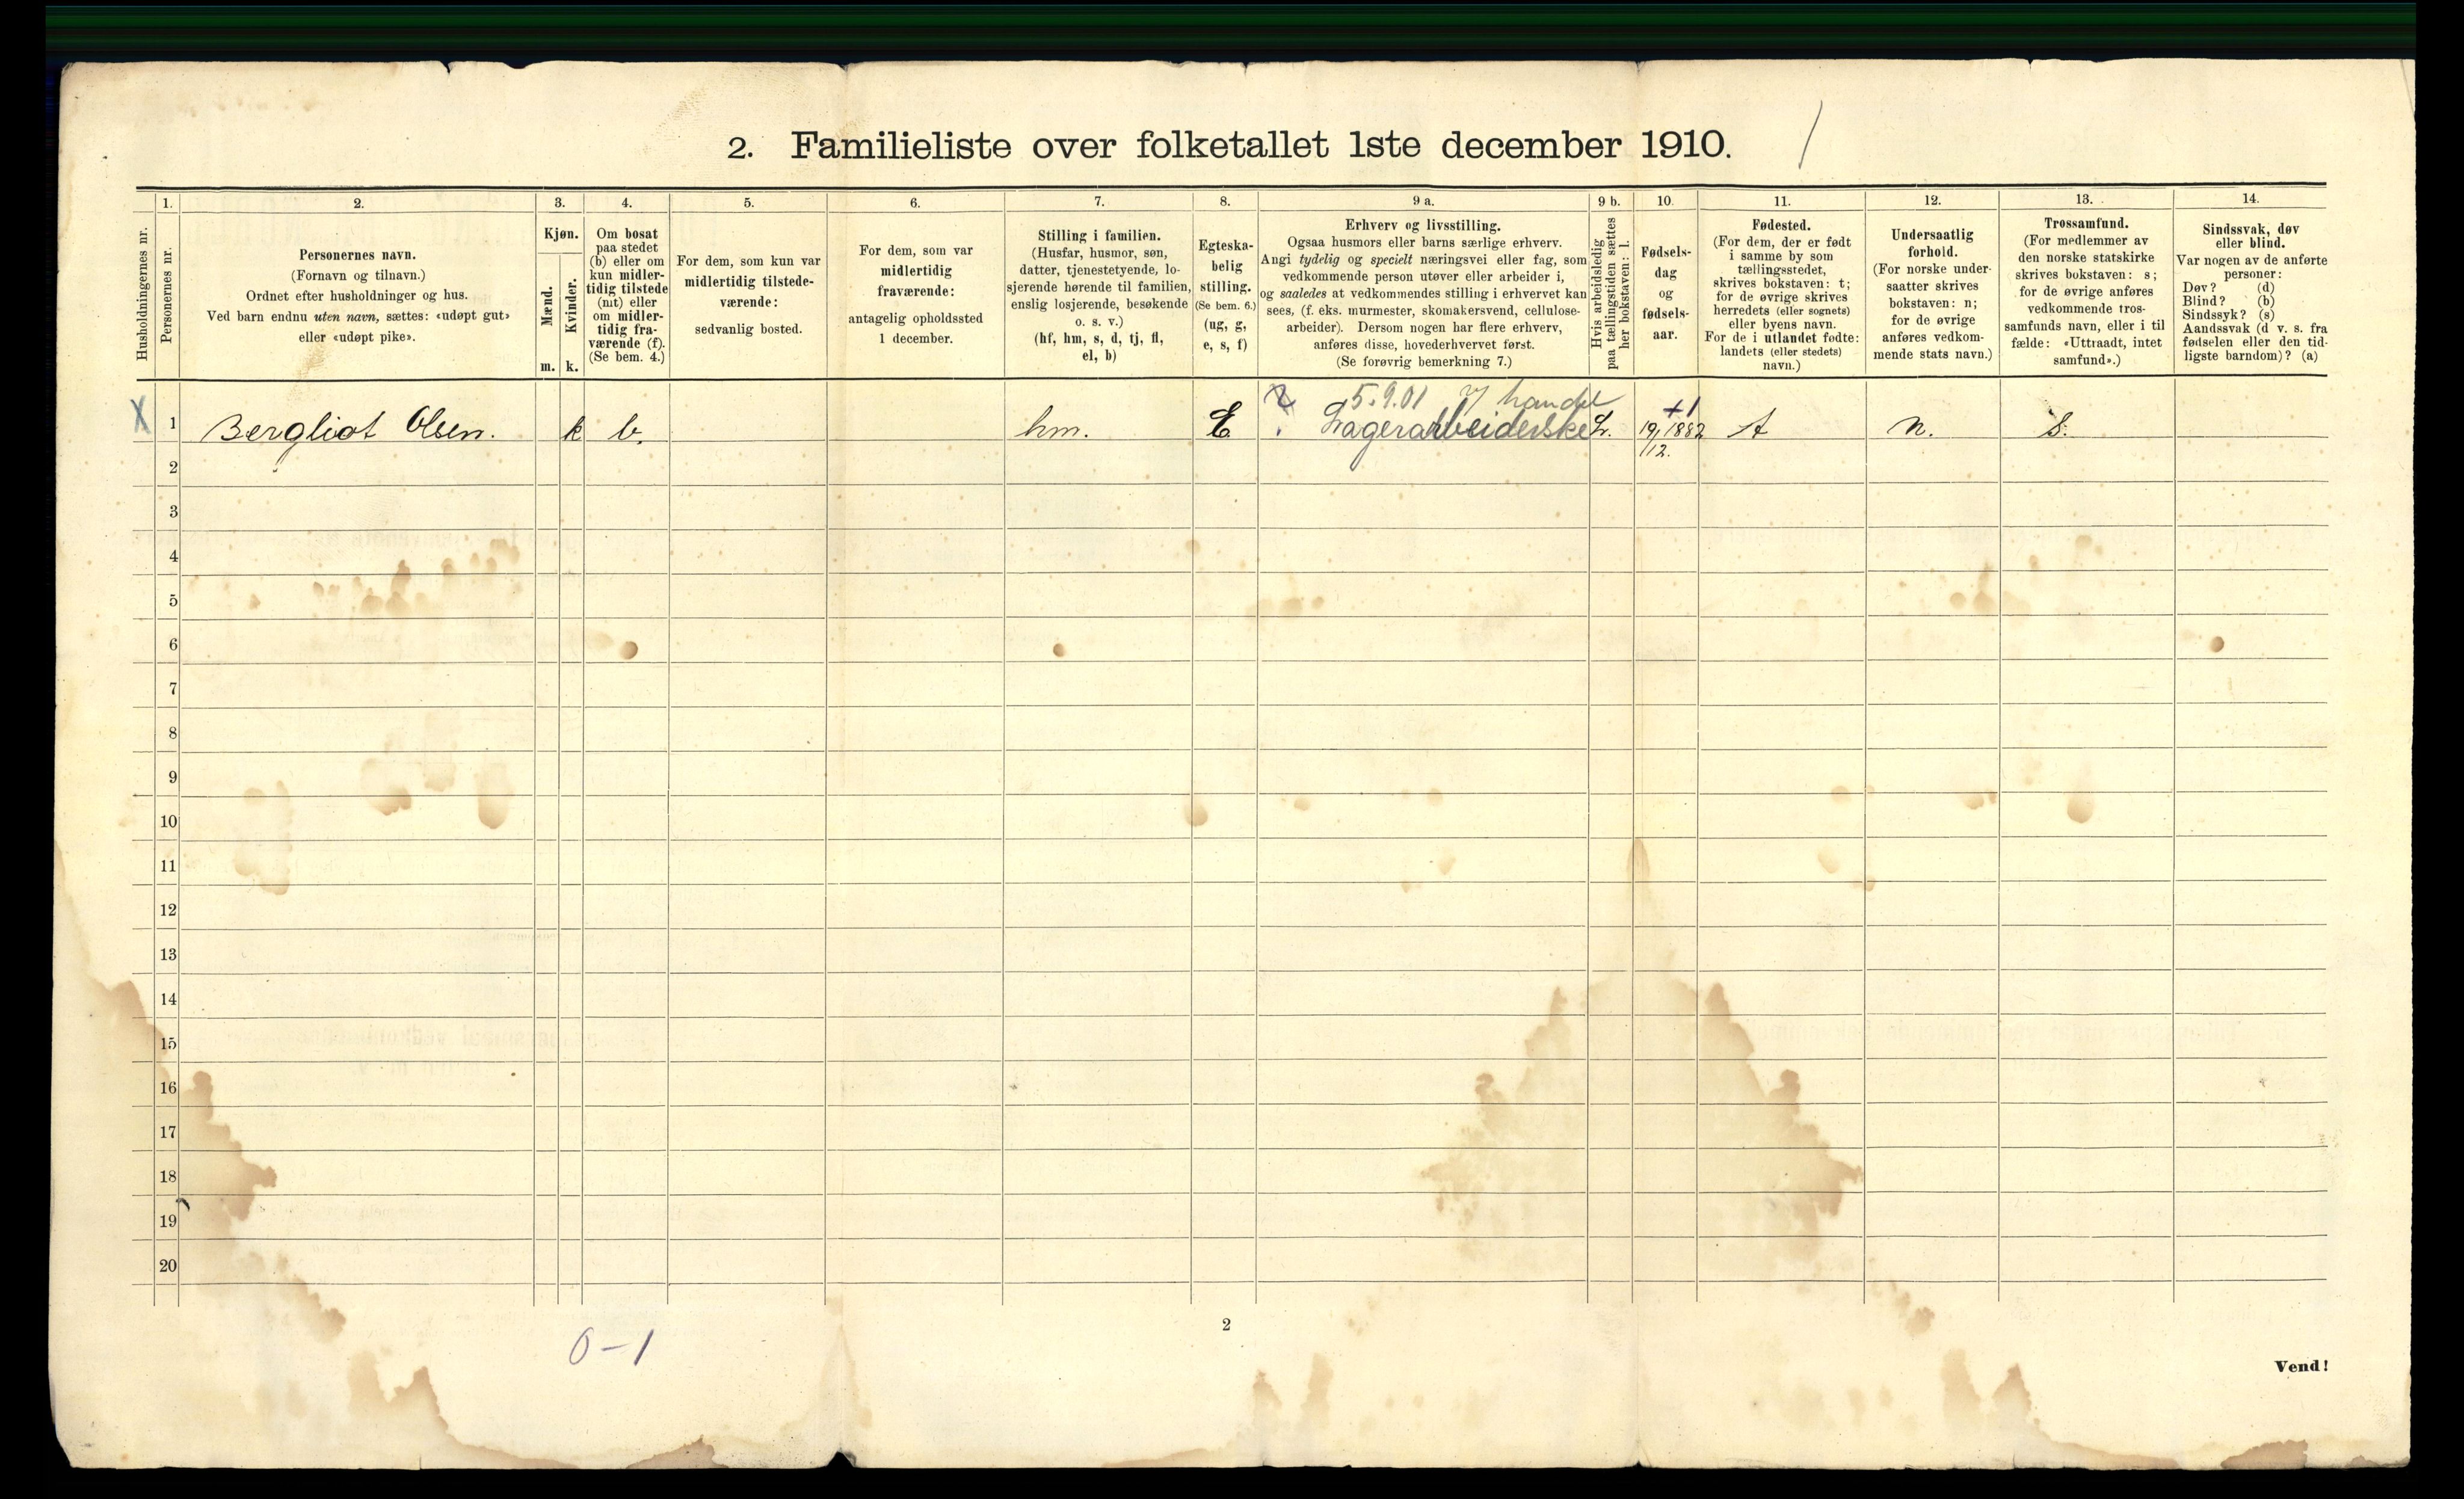 2. Familieliste over folketallet 1ste december 1910.
Husholdningernes nr.
1.
Personernes nr.
2.
Personernes navn.
(Fornavn og tilnavn.)
Ordnet efter husholdninger og hus.
Ved barn endnu uten navn, sættes: «udøpt gut»
eller «udøpt pike».
3.
Kjøn.
Mænd.
Kvinder.
m. k.
4.
Om bosat
paa stedet
(b) eller om
kun midler-
tidig tilstede
(mt) eller
om midler-
tidig fra-
værende (f).
(Se bem. 4.)
5.
For dem, som kun var
midlertidig tilstede-
værende:
sedvanlig bosted.
6.
For dem, som var
midlertidig
fraværende:
antagelig opholdssted
1 december.
7.
Stilling i familien.
(Husfar, husmor, søn,
datter, tjenestetyende, lo-
sjerende hørende til familien,
enslig losjerende, besøkende
o. s. v.)
(hf, hm, s, d, tj, fl,
el, b)
8.
Egteska-
belig
stilling.
(Se bem. 6.)
(ug, g,
e, s, f)
9 a.
Erhverv og livsstilling.
Ogsaa husmors eller barns særlige erhverv.
Angi tydelig og specielt næringsvei eller fag, som
vedkommende person utøver eller arbeider i,
og saaledes at vedkommendes stilling i erhvervet kan
sees, (f. eks. murmester, skomakersvend, cellulose-
arbeider). Dersom nogen har flere erhverv,
anføres disse, hovederhvervet først.
(Se forøvrig bemerkning 7.)
9 b.
Hvis arbeidsledig
paa tællingstiden sættes
her bokstaven: l.
10.
Fødsels-
dag
og
fødsels-
aar.
11.
Fødested.
(For dem, der er født
i samme by som
tællingsstedet,
skrives bokstaven: t;
for de øvrige skrives
herredets (eller sognets)
eller byens navn.
For de i utlandet fødte:
landets (eller stedets)
navn.)
12.
Undersaatlig
forhold.
(For norske under-
saatter skrives
bokstaven: n;
for de øvrige
anføres vedkom-
mende stats navn.)
13.
Trossamfund.
(For medlemmer av
den norske statskirke
skrives bokstaven: s;
for de øvrige anføres
vedkommende tros-
samfunds navn, eller i til
fælde: «Uttraadt, intet
samfund».)
14.
Sindssvak, døv
eller blind.
Var nogen av de anførte
personer:
Døv? (d)
Blind? (b)
Sindssyk? (s)
Aandssvak (d v. s. fra
fødselen eller den tid-
ligste barndom)? (a)
5.9.01 v/ handel
X 1 Bergliot Olsen. k b. hm. E. Lagerarbeiderske L. 19/12. 1882 +1 t n. S.
2
3
4
5
6
7
8
9
10
11
12
13
14
15
16
17
18
19
20
0-1
2
Vend!